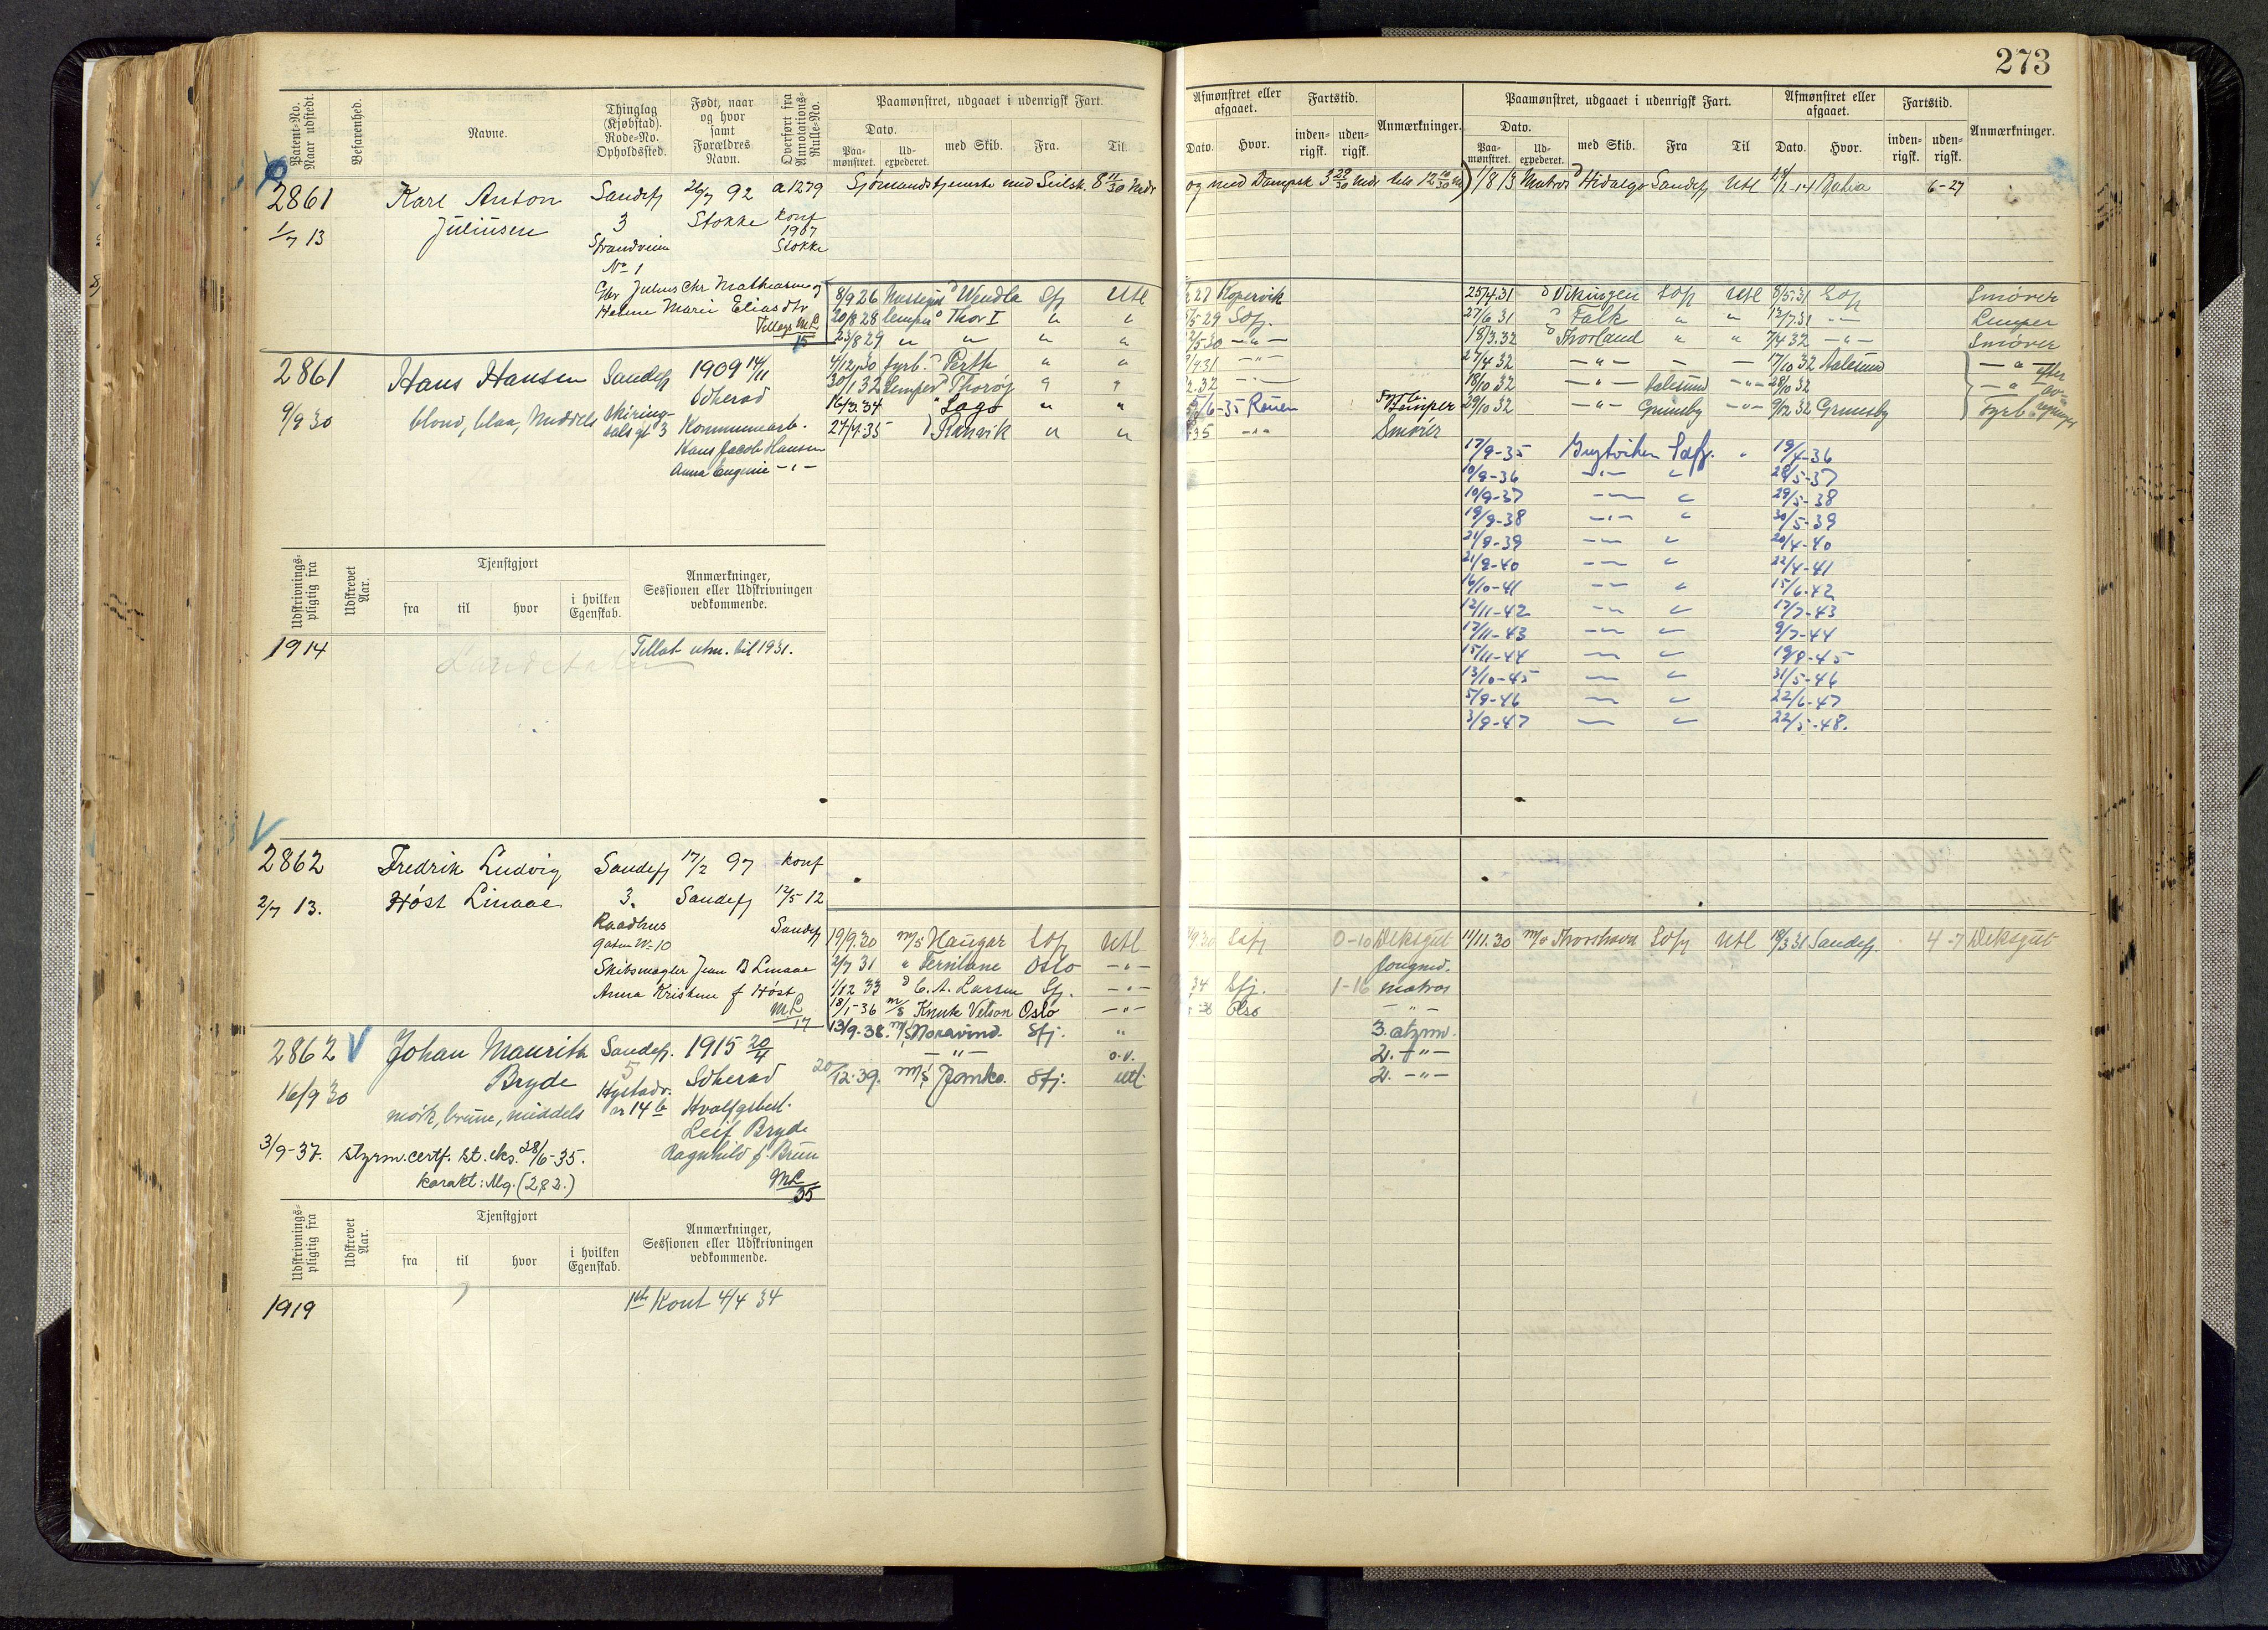 273
Patent-No. Naar udstedt.
Befarenhed.
Navne.
Thinglag (Kjøbstad). Rode-No. Opholdssted.
Født, naar og hvor samt Forældres Navn.
Overført fra Annotations-Rulle-No.
Paamønstret, udgaaet i udenrigsk Fart.
Dato.
Paa-mønstret.
Ud-expederet.
med Skib.
Fra.
Til.
Afmønstret eller afgaaet.
Dato.
Hvor.
Fartstid.
inden-rigsk.
uden-rigsk.
Anmærkninger.
Paamønstret, udgaaet i udenrigsk Fart.
Dato.
Paa-mønstret.
Ud-expederet.
med Skib.
Fra
Til
Afmønstret eller afgaaet.
Dato.
Hvor.
Fartstid.
inden-rigsk.
uden-rigsk.
Anmærkninger.
2861 Karl Anton Sandefj 26/7 92 a1279
1/7 13 Juliusen 3 Stokke konf 1907 Stokke
Strandveien
No 1
Julius Chr Mathiasen og
Helene Marie Eliasdtr
M.L. 15
Sjømandstjeneste med Seilsk. 8 11/30 Mdr
og med Dampsk 3 29/30 Mdr
1/8 13 Matros Hidalgo Sandefj Utl 6-27
2861 Hans Hansen Sandefj 1909 14/11
9/9 30 Solherad
blond, blaa, Middels Skiringsals gt 3 Kommunearb.
Hans Jacob Hansen
Anna Eugenie -"-
8/9 26 Wendla Sfj Utl
20/8 28 lemper Thor I " "
23/8 29 " " " "
4/12 30 fyrb. Perth " "
30/1 32 Lemper Thorøy " "
16/3.34 Sago " "
27/7.35 Ranvik " "
27 Kopervik
29 Sofj.
30 -"-
31 -"-
.32 -"-
6-35 Rouen Lemper
35 -"- Smører
25/4.31 Vikingen Sofj Utl 8/5.31 Sofj Smører
27/6 31 Falk " " 12/7.31 -"- Lemper
18/3.32 Thorland " " 7/4 32 -"- Smører
27/4 32 -"- - - 17/10 32 Aalesund -"- efter
18/10 32 -"- Aalesund -"- 28/10 32 -"-
29/10 32 -"- Grimsby -"- 9/12 32 Grimsby Fyrb
17/9-35 Grytviken Sofj. " 19/4-36
10/9-36 -"- " 28/5-37
10/9-37 -"- " 29/5-38
19/9-38 -"- " 30/5-39
21/9-39 -"- " 20/4-40
21/9-40 -"- " 22/4-41
16/10-41 -"- " 15/6-42
12/11-42 -"- " 17/7-43
17/11-43 -"- " 9/7-44
15/11-44 -"- " 19/8-45
13/10-45 -"- " 31/5-46
5/9-46 -"- " 22/6-47
3/9-47 -"- " 22/5-48.
Udskrivnings-pligtig fra
Udskrevet Aar.
Tjenstgjort
fra
til
hvor
i hvilken Egenskab.
Anmærkninger, Sessionen eller Udskrivningen vedkommende.
1914 Tillat utm. til 1931.
2862 Fredrik Ludvig Sandefj 17/2 97 konf
2/7 13. Høst Linaae 3. Sandefj 12/5 12
Raadhus Sandefj
gaten No 10
Skibsmægler Jean B Linaae
Anna Kristine f Høst
M.L. 17
2862 Johan Mauritz Sandefj. 1915 20/4
Bryde 5 Solherad
16/9 30 Hystadv. nr 14 b Hvalfgbest.
mørk, brune, middels
Leif Bryde
3/9-37. styrm.certf. st. eks. 28/6-35. Ragnhild f. Bruun
karakt: Mg. (2,82.)
M.L. 35
19/9.30 m/s Haugar Sofj Utl
2/7 31 " Fernlane Oslo -"-
1/12 33 C. A. Larsen Sfj. -"-
18/1-36 m/s Knute Nelson Oslo -"-
13/9-38. m/s Noravind. Sfj. "
-"- o.v.
20/12-39. m/s Jamko. Sfj. utl.
Sofj 0-10 Deksgut
Jungmd.
34 Sfj. 1-16 matros
36 Oslo -"-
3. styrm.
2. -"-
2. -"-
11/11.30 m/s Thorshavn Sofj Utl 18/3 31 Sandefj. 4-7 Deksgut
Udskrivnings-pligtig fra
Udskrevet Aar.
Tjenstgjort
fra
til
hvor
i hvilken Egenskab.
Anmærkninger, Sessionen eller Udskrivningen vedkommende.
1919 4/4 34